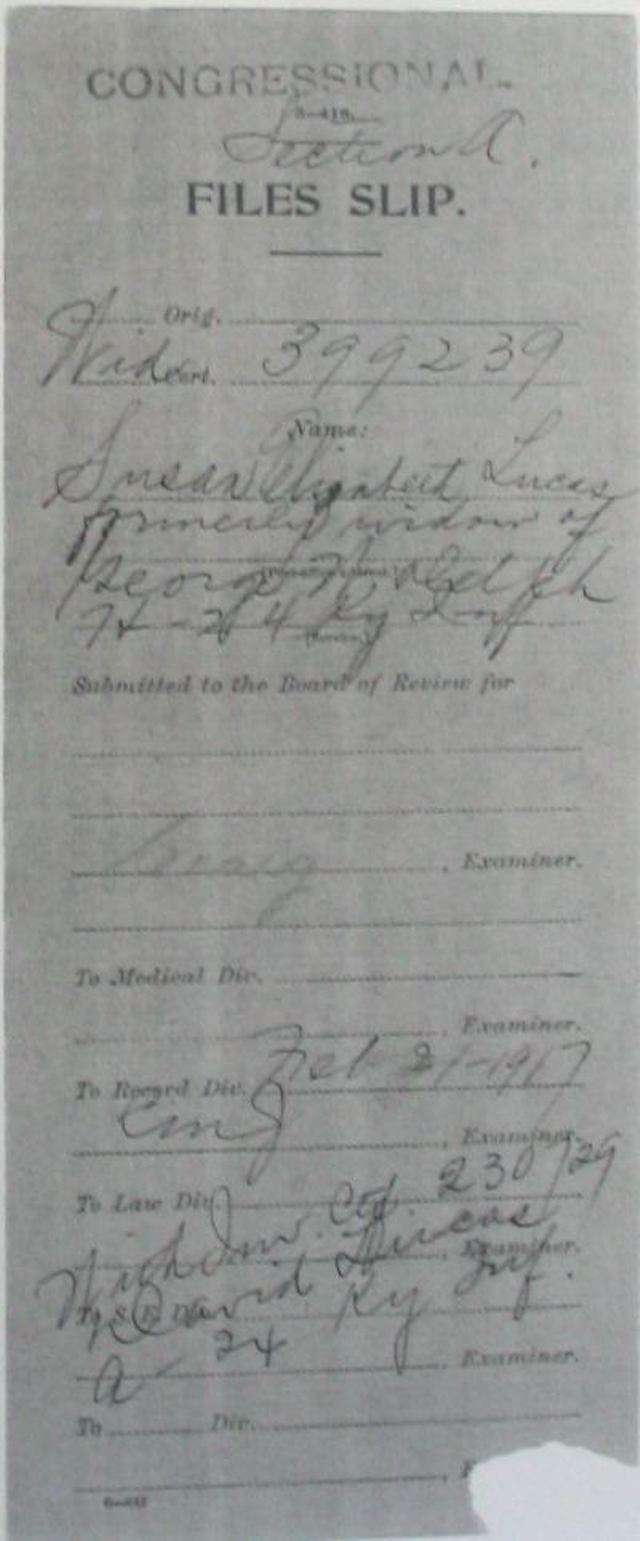 CONGRESSIONAL.
Section A.
FILES SLIP.
Orig.
Wid Cert. 399239
Name:
Susan Elizabeth Lucas
formerly widow of
George
24 Ky Inf
Submitted to the Board of Review for
, Examiner.
To Medical Div.
, Examiner.
To Record Div. Feb 21-1917
, Examiner.
To Law Div.
Wid Ctf. 230729
, Examiner.
David Lucas
A 24 Ky Inf.
, Examiner.
To Div.